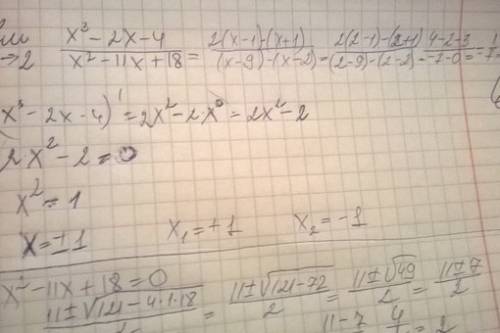 lim x→2 (x³ - 2x - 4)/(x² - 11x + 18) = 2(x-1)·(x+1)/((x-9)·(x-2)) = 2(2-1)·(2+1)/((2-9)·(2-2))
x³ - 2x - 4)' = 2x² - 2x⁰ = 2x² - 2
2x² - 2 = 0
x² = 1
x = ±1 x₁ = +1 x₂ = -1
x² - 11x + 18 = 0
11±√(121-4·1·18) = (11±√(121-72))/2 = (11±√49)/2 = (11±7)/2
11-7 4 = 2